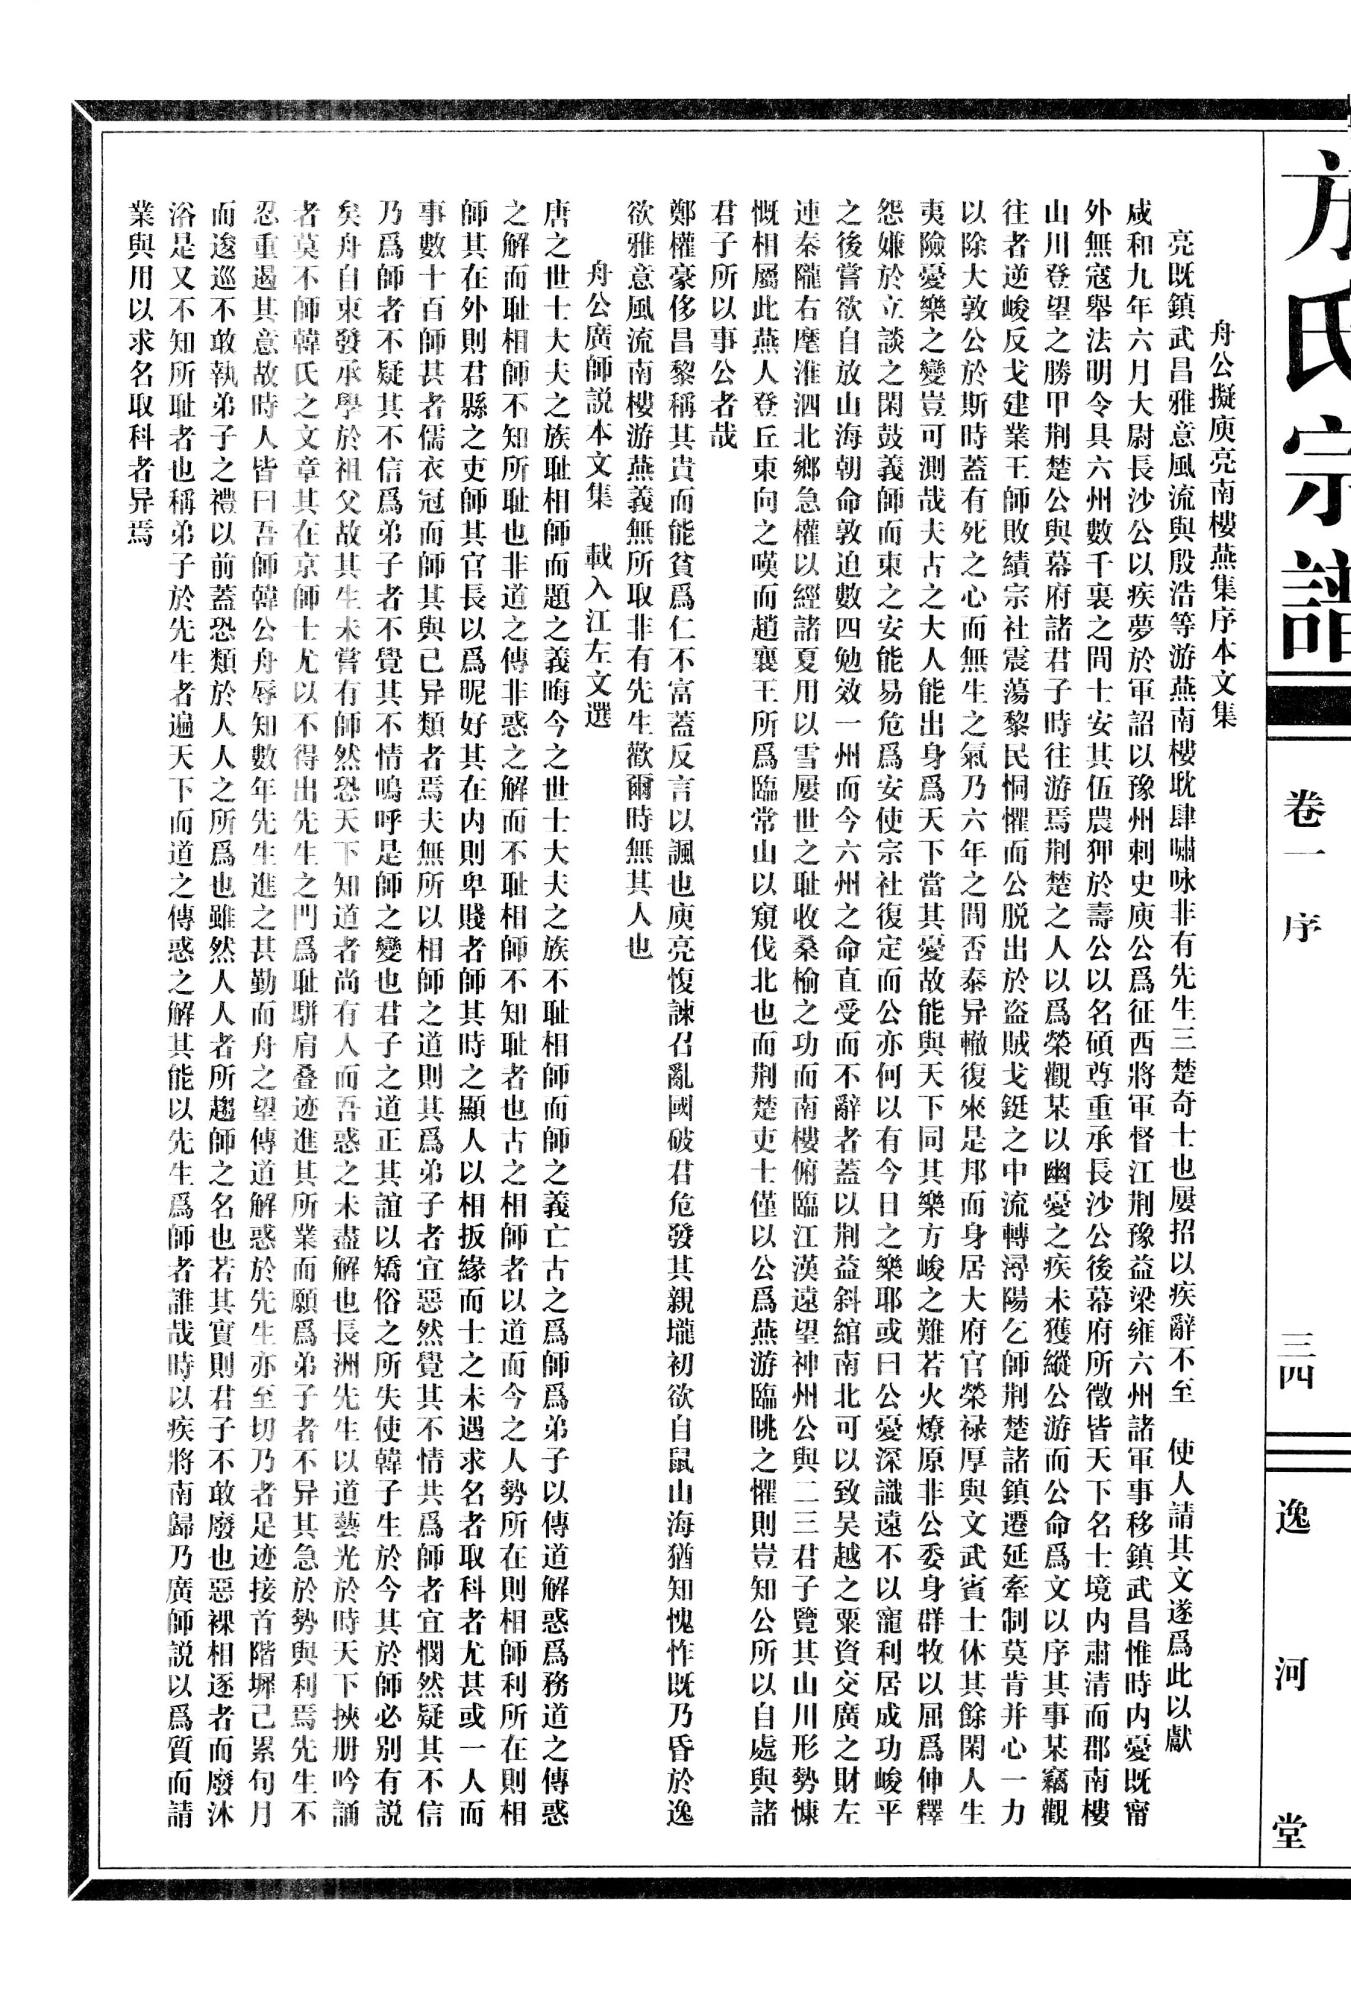 方氏宗譜
卷一 序
三四
逸河堂
舟公擬庾亮南樓燕集序本文集
亮既鎮武昌雅意風流與殷浩等游燕南樓耽肆嘯咏非有先生三楚奇士也屢招以疾辭不至 使人請其文遂爲此以獻
咸和九年六月大尉長沙公以疾夢於軍詔以豫州刺史庾公爲征西將軍督江荆豫益梁雍六州諸軍事移鎮武昌惟時内憂既甯
外無寇舉法明令具六州數千裏之間士安其伍農狎於壽公以名碩尊重承長沙公後幕府所徵皆天下名士境内肅清而郡南樓
山川登望之勝甲荆楚公與幕府諸君子時往游焉荆楚之人以爲榮觀某以幽憂之疾未獲縱公游而公命爲文以序其事某竊觀
往者逆峻反戈建業王師敗績宗社震蕩黎民恫懼而公脱出於盜賊戈鋋之中流轉潯陽乞師荆楚諸鎮遷延牽制莫肯并心一力
以除大敦公於斯時蓋有死之心而無生之氣乃六年之間否泰异轍復來是邦而身居大府官榮禄厚與文武賓士休其餘閑人生
夷險憂樂之變豈可測哉夫古之大人能出身爲天下當其憂故能與天下同其樂方峻之難若火燎原非公委身群牧以屈爲伸釋
怨嫌於立談之閑鼓義師而東之安能易危爲安使宗社復定而公亦何以有今日之樂耶或曰公憂深識遠不以寵利居成功峻平
之後嘗欲自放山海朝命敦迫數四勉效一州而今六州之命直受而不辭者蓋以荆益斜綰南北可以致吴越之粟資交廣之財左
連秦隴右麾淮泗北鄉急權以經諸夏用以雪屢世之耻收桑榆之功而南樓俯臨江漢遠望神州公與二三君子覽其山川形勢慷
慨相屬此燕人登丘東向之嘆而趙襄王所爲臨常山以窺伐北也而荆楚吏士僅以公爲燕游臨眺之懼則豈知公所以自處與諸
君子所以事公者哉
鄭權豪侈昌黎稱其貴而能貧爲仁不富蓋反言以諷也庾亮愎諫召亂國破君危發其親壠初欲自鼠山海猶知愧怍既乃昏於逸
欲雅意風流南樓游燕義無所取非有先生歡爾時無其人也
舟公廣師説本文集 載入江左文選
唐之世士大夫之族耻相師而題之義晦今之世士大夫之族不耻相師而師之義亡古之爲師爲弟子以傳道解惑爲務道之傳惑
之解而耻相師不知所耻也非道之傳非惑之解而不耻相師不知耻者也古之相師者以道而今之人勢所在則相師利所在則相
師其在外則君縣之吏師其官長以爲昵好其在内則卑賤者師其時之顯人以相扳緣而士之未遇求名者取科者尤甚或一人而
事數十百師甚者儒衣冠而師其與己异類者焉夫無所以相師之道則其爲弟子者宜惡然覺其不情共爲師者宜憫然疑其不信
乃爲師者不疑其不信爲弟子者不覺其不情嗚呼是師之變也君子之道正其誼以矯俗之所失使韓子生於今其於師必别有説
矣舟自束發承學於祖父故其生未嘗有師然恐天下知道者尚有人而吾惑之未盡解也長洲先生以道藝光於時天下挾册吟誦
者莫不師韓氏之文章其在京師士尤以不得出先生之門爲耻駢肩叠迹進其所業而願爲弟子者不异其急於勢與利焉先生不
忍重遏其意故時人皆曰吾師韓公舟辱知數年先生進之甚勤而舟之望傳道解惑於先生亦至切乃者足迹接首階墀己累旬月
而逡巡不敢執弟子之禮以前蓋恐類於人人之所爲也雖然人人者所趨師之名也若其實則君子不敢廢也惡裸相逐者而廢沐
浴是又不知所耻者也稱弟子於先生者遍天下而道之傳惑之解其能以先生爲師者誰哉時以疾將南歸乃廣師説以爲質而請
業與用以求名取科者异焉